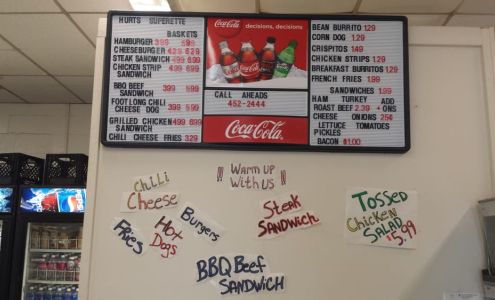 HURTS SUPERETTE
BASKETS
HAMBURGER 399 599
CHEESEBURGER 429 629
STEAK SANDWICH 499 699
CHICKEN STRIP 499 699
SANDWICH
BBQ BEEF 399 599
SANDWICH
FOOT LONG CHILI
CHEESE DOG 399 599
GRILLED CHICKEN 499 699
SANDWICH
CHILI CHEESE FRIES 329
Coca-Cola decisions, decisions
CALL AHEADS
452-2444
Coca-Cola
BEAN BURRITO 1.29
CORN DOG 1.29
CRISPITOS 1.49
CHICKEN STRIPS 1.29
BREAKFAST BURRITOS 1.29
FRENCH FRIES 1.99
SANDWICHES 1.99
HAM TURKEY ADD
ROAST BEEF 2.39 + ONS
CHEESE ONIONS 25¢
LETTUCE TOMATOES
PICKLES
BACON $1.00
!! WARM UP !!
WITH US
CHiLi
CHEESE
FRiES
HOT
DOGS
BURGERS
STEAK
SANDWICH
BBQ BEEF
SANDWICH
TOSSED
CHICKEN
SALAD
$5.99